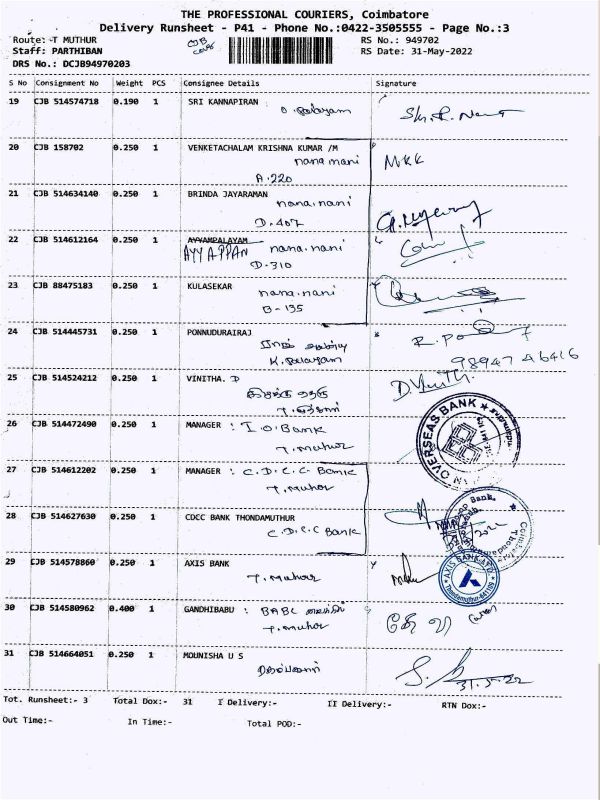 THE PROFESSIONAL COURIERS, Coimbatore
Delivery Runsheet - P41 - Phone No.:0422-3505555 - Page No.:3
Route: -T MUTHUR
RS No.: 949702
Staff: PARTHIBAN
RS Date: 31-May-2022
DRS No.: DCJB94970203
S No Consignment No Weight PCS Consignee Details Signature
19 CJB 514574718 0.190 1 SRI KANNAPIRAN :
20 CJB 158702 0.250 1 VENKETACHALAM KRISHNA KUMAR /M MKK
nana mani
A.220
21 CJB 514634140 0.250 1 BRINDA JAYARAMAN
nana.nani
D.407
22 CJB 514612164 0.250 1 AYYAMPALAYAM nana.nani
AYYAPPAN
D-310
23 CJB 88475183 0.250 1 KULASEKAR
nana.nani
B-135
24 CJB 514445731 0.250 1 PONNUDURAIRAJ
98947 46416
25 CJB 514524212 0.250 1 VINITHA. D D.Vinitha
26 CJB 514472490 0.250 1 MANAGER : I.O.Bank
T.muthor
OVERSEAS BANK
27 CJB 514612202 0.250 1 MANAGER : C.D.C.C Bank
T.muthor
28 CJB 514627630 0.250 1 CDCC BANK THONDAMUTHUR
C.D.C.C Bank
29 CJB 514578860 0.250 1 AXIS BANK
T.muthor
AXIS BANK LTD
30 CJB 514580962 0.400 1 GANDHIBABU : BABL
T.muthor
31 CJB 514664051 0.250 1 MOUNISHA U S
31.5.22
Tot. Runsheet:- 3 Total Dox:- 31 I Delivery:- II Delivery:- RTN Dox:-
Out Time:- In Time:- Total POD:-